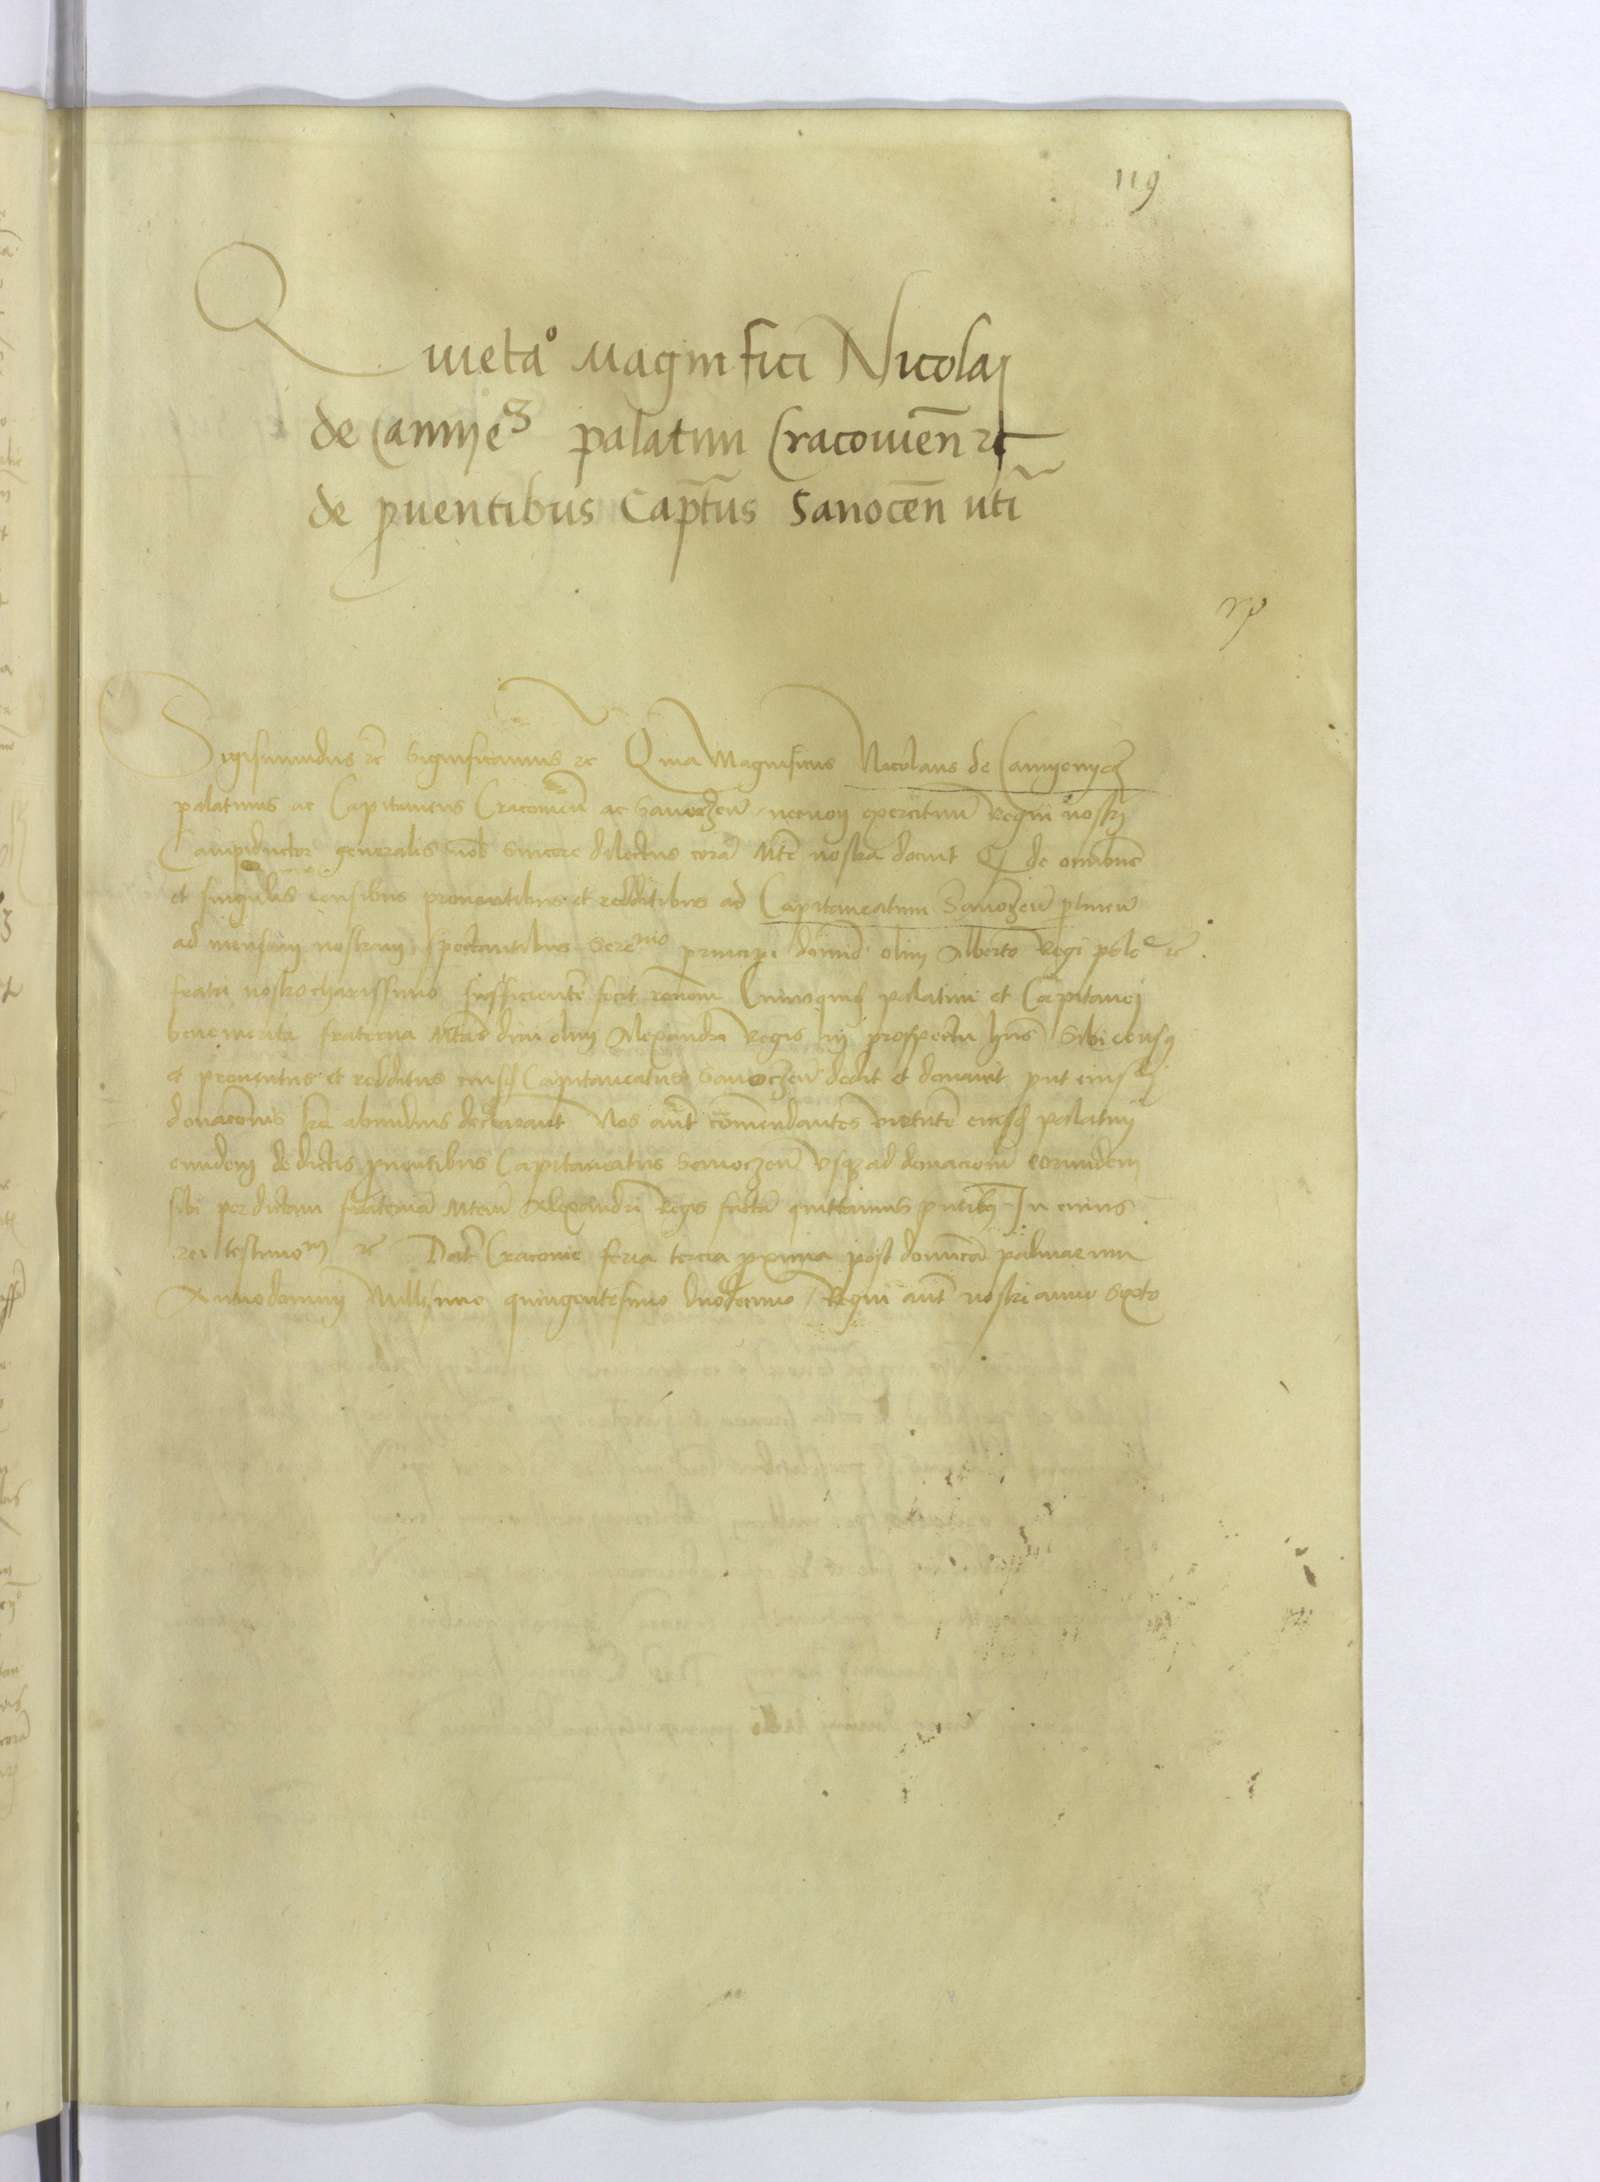 119
Quieta° Magnifici Nicolaj
de Camye3 palatini Cracouien̄ zc
de ꝓuentibus Cap̄tus Sanocen̄ uti
Sigismundus zc Significamus zc Quia Magnificus Nicolaus de Camyenyecz
palatinus ac Capitaneus Cracouien̄ ac Sanoczen̄ necnon exercituum Regni nostrj
Campiductor generalis nob̄ sincere dilectus corā Mte nostra docuit Q de omnibus
et singulis censibus prouentibus et redditibus ad Capitaneatum Sanoczen̄ ꝑtinen̄
ad mensam nostram spectantibus Sere^mo principi domino olim Alberto Regi polo^e zc
fratri nostro charissimo sufficientē fecit rōnem Cuiusquidē palatini et Capitanej
benemerita fraterna Mtas diui olim Alexandri Regis in prospectu hn̄s Sibi censꝯ
et prouentus et redditus eiusd Capitaneatus Sanoczen̄ dedit et donauit put eiusdē
donacōnis lrē abundius declarant Nos aūt cōmendantes virtutē eiusd palatinj
eundem de dictis ꝓuentibus Capitaneatus Sanoczen̄ vsqꝫ ad donacionē eorundem
sibi per dictam fraternā Mtem Alexandri Regis factā quittamus pn̄tibꝫ In cuius
rei testimo^m zc Datē Cracouie feria tercia ꝓxima post domīcā palmarum
Anno domini Millesimo quingentesimo duodecimo Regni aūt nostri anno Sexto